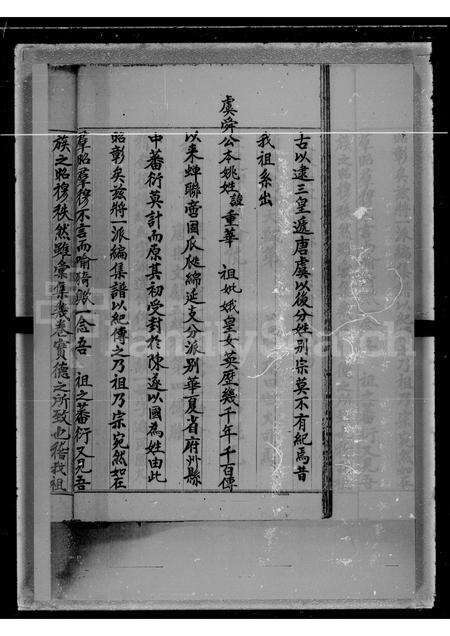 古以逮三皇遞唐虞以後分姓別宗莫不有紀焉昔
我祖系出
虞舜公本姚姓諱重華 祖妣娥皇女英歷幾千年千百傳
以来蟬聯帝國瓜瓞綿延支分派别華夏省府州縣
中蕃衍莫計而原其初受封於陳遂以國為姓由此
昭彰矣茲將一派編集譜以紀傳之乃祖乃宗宛然如在
羣昭羣穆不言而喻猗歟一念吾 祖之蕃衍又見吾
族之昭穆秩然雖彙集幾卷實德之所致也稽我祖
FamilySearch